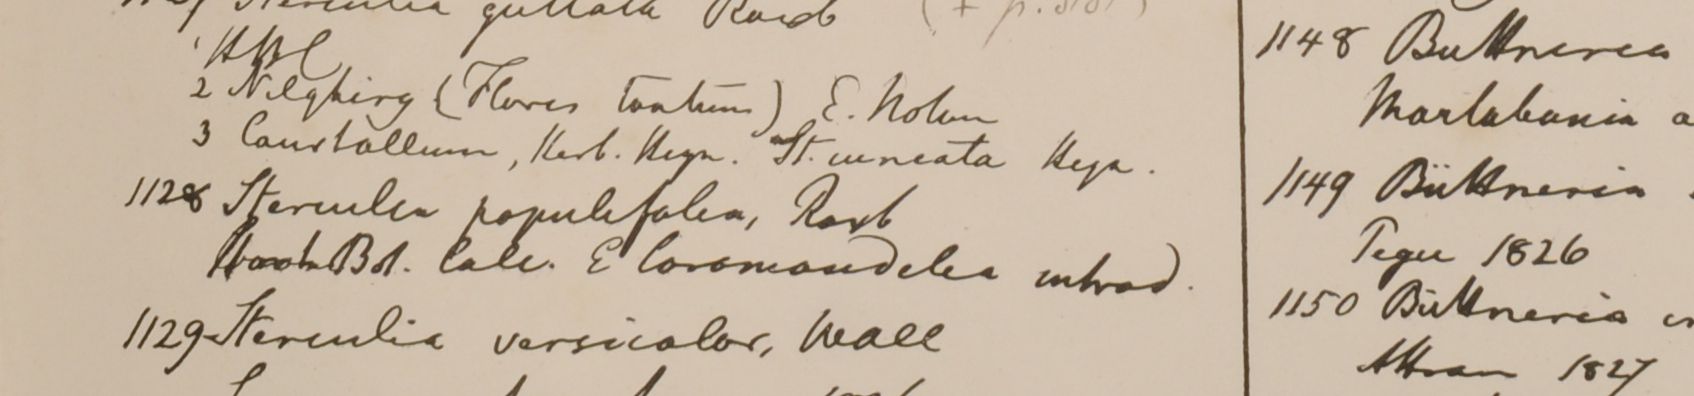 Sterculia guttata Roxb
1 HBC
2 Nilghiry (Flores tantum) E. Noton
3 Courtallum, Herb. Heyn. St. cuneata Heyn.
1128 Sterculia populifolia, Roxb
Hort Bot. Calc. E Coromandelia introd.
1129 Sterculia versicolor, Wall
1148 Buttneria
Martabania a
1149 Büttneria
Tegu 1826
1150 Büttneria
Attran 1827